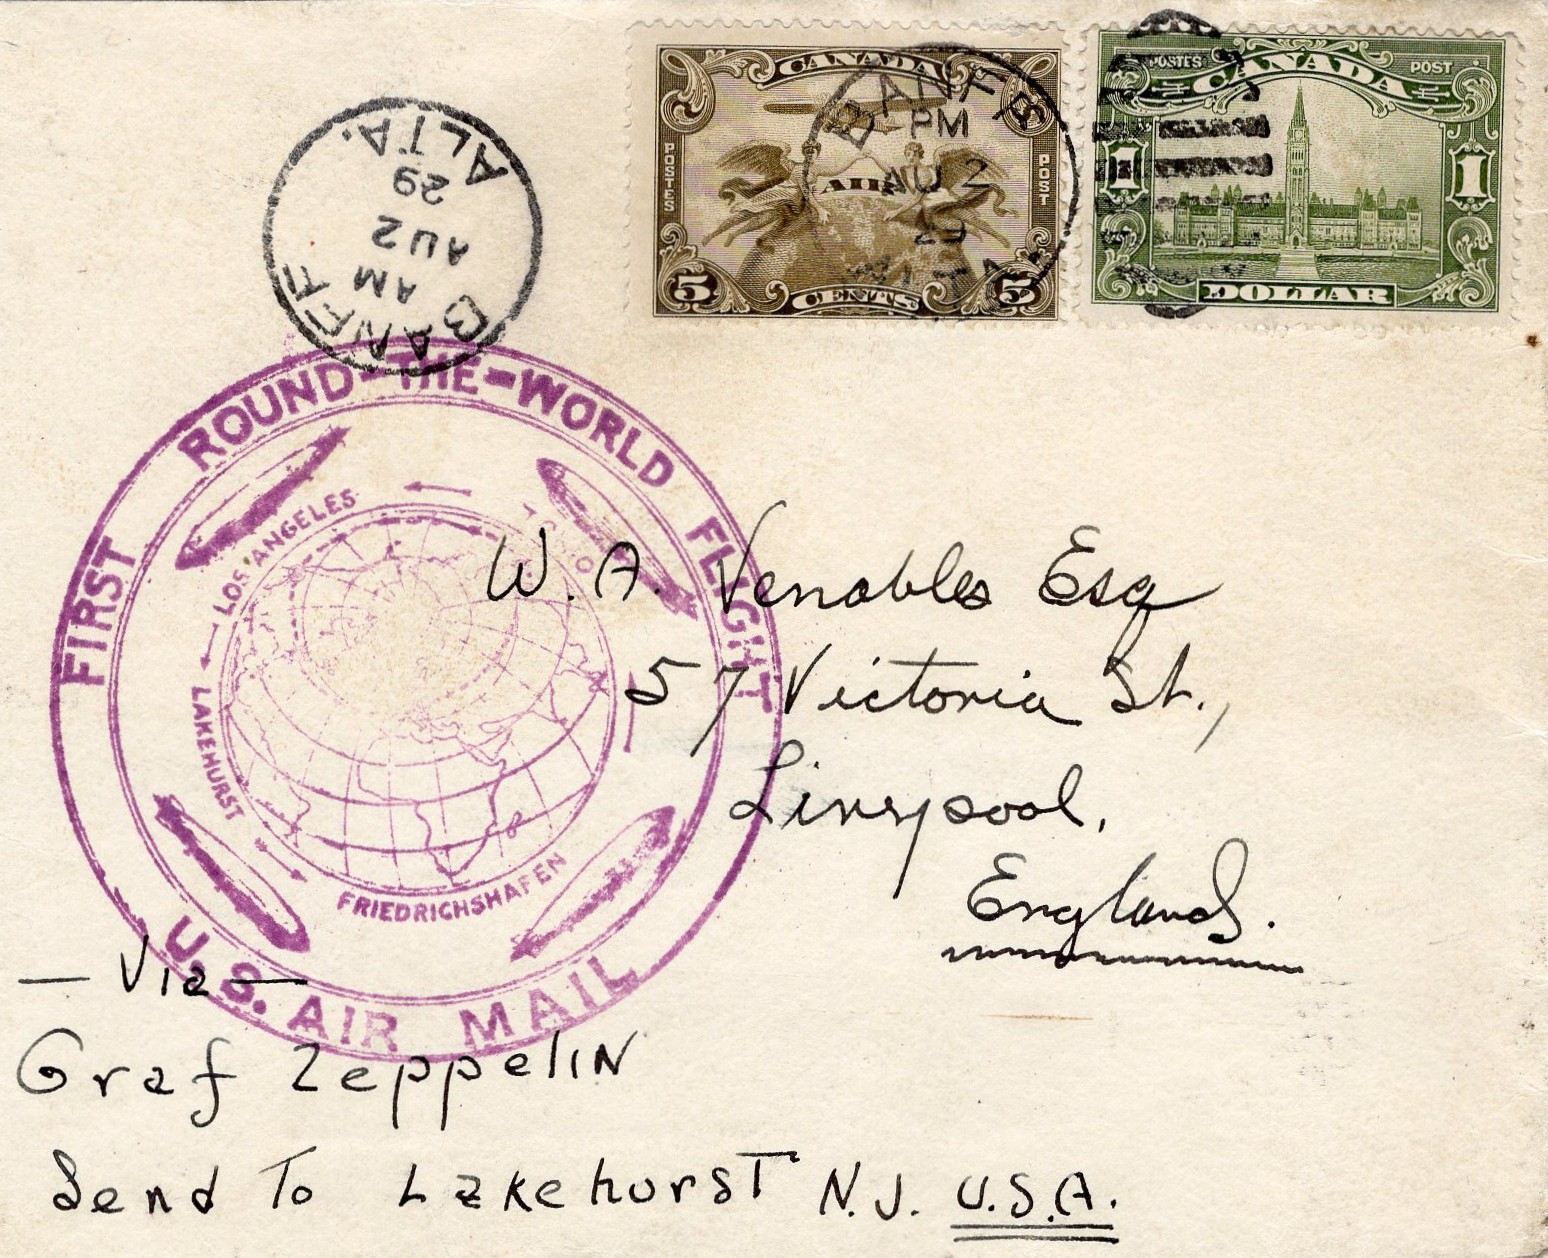 CANADA
POSTES
POST
AIR
5 CENTS 5
BANFF
PM
AU 2
ALTA.
POSTES POST
CANADA
1 1
DOLLAR
BANFF
AM
AU 2
29
ALTA.
FIRST ROUND-THE-WORLD FLIGHT
LOS ANGELES
LAKEHURST
FRIEDRICHSHAFEN
U.S. AIR MAIL
W. A. Venables Esq
57 Victoria St.,
Liverpool,
England.
— Via —
Graf Zeppelin
Send To Lakehurst N.J. U.S.A.